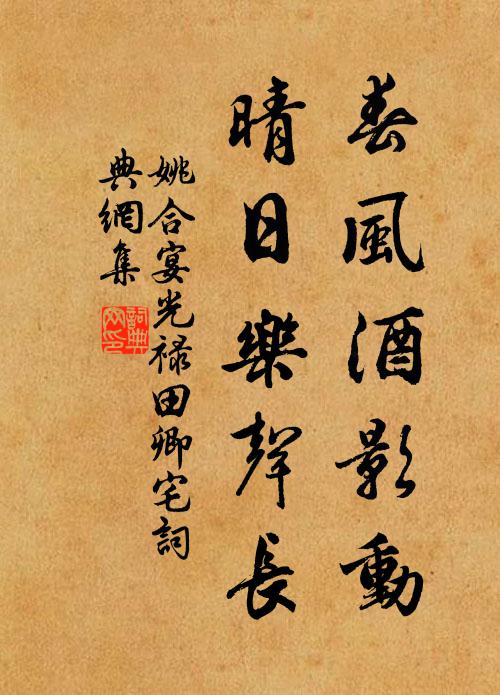 春風酒影動
晴日樂聲長
姚合宴光祿田卿宅詞
典網集
詞典網印